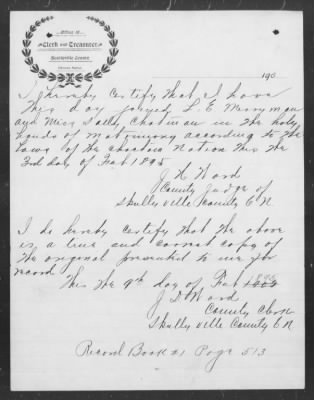 Office of
Clerk and Treasurer
Scullyville County
190
I hereby certify that I have
this day joined L. E. Merryman
and Miss Sally Chatman in the holy
bonds of Matrimony according to the
Laws of the Choctaw Nation this the
3rd day of Feb 1895
J. H. Ward
County Judge of
Skullyville County C N
I do hereby certify that the above
is a true and correct copy of
the original presented to me for
record
This the 9th day of Feb 1895
J. D. Ward
County Clerk
Skullyville County C N
Record Book #1 Page 513